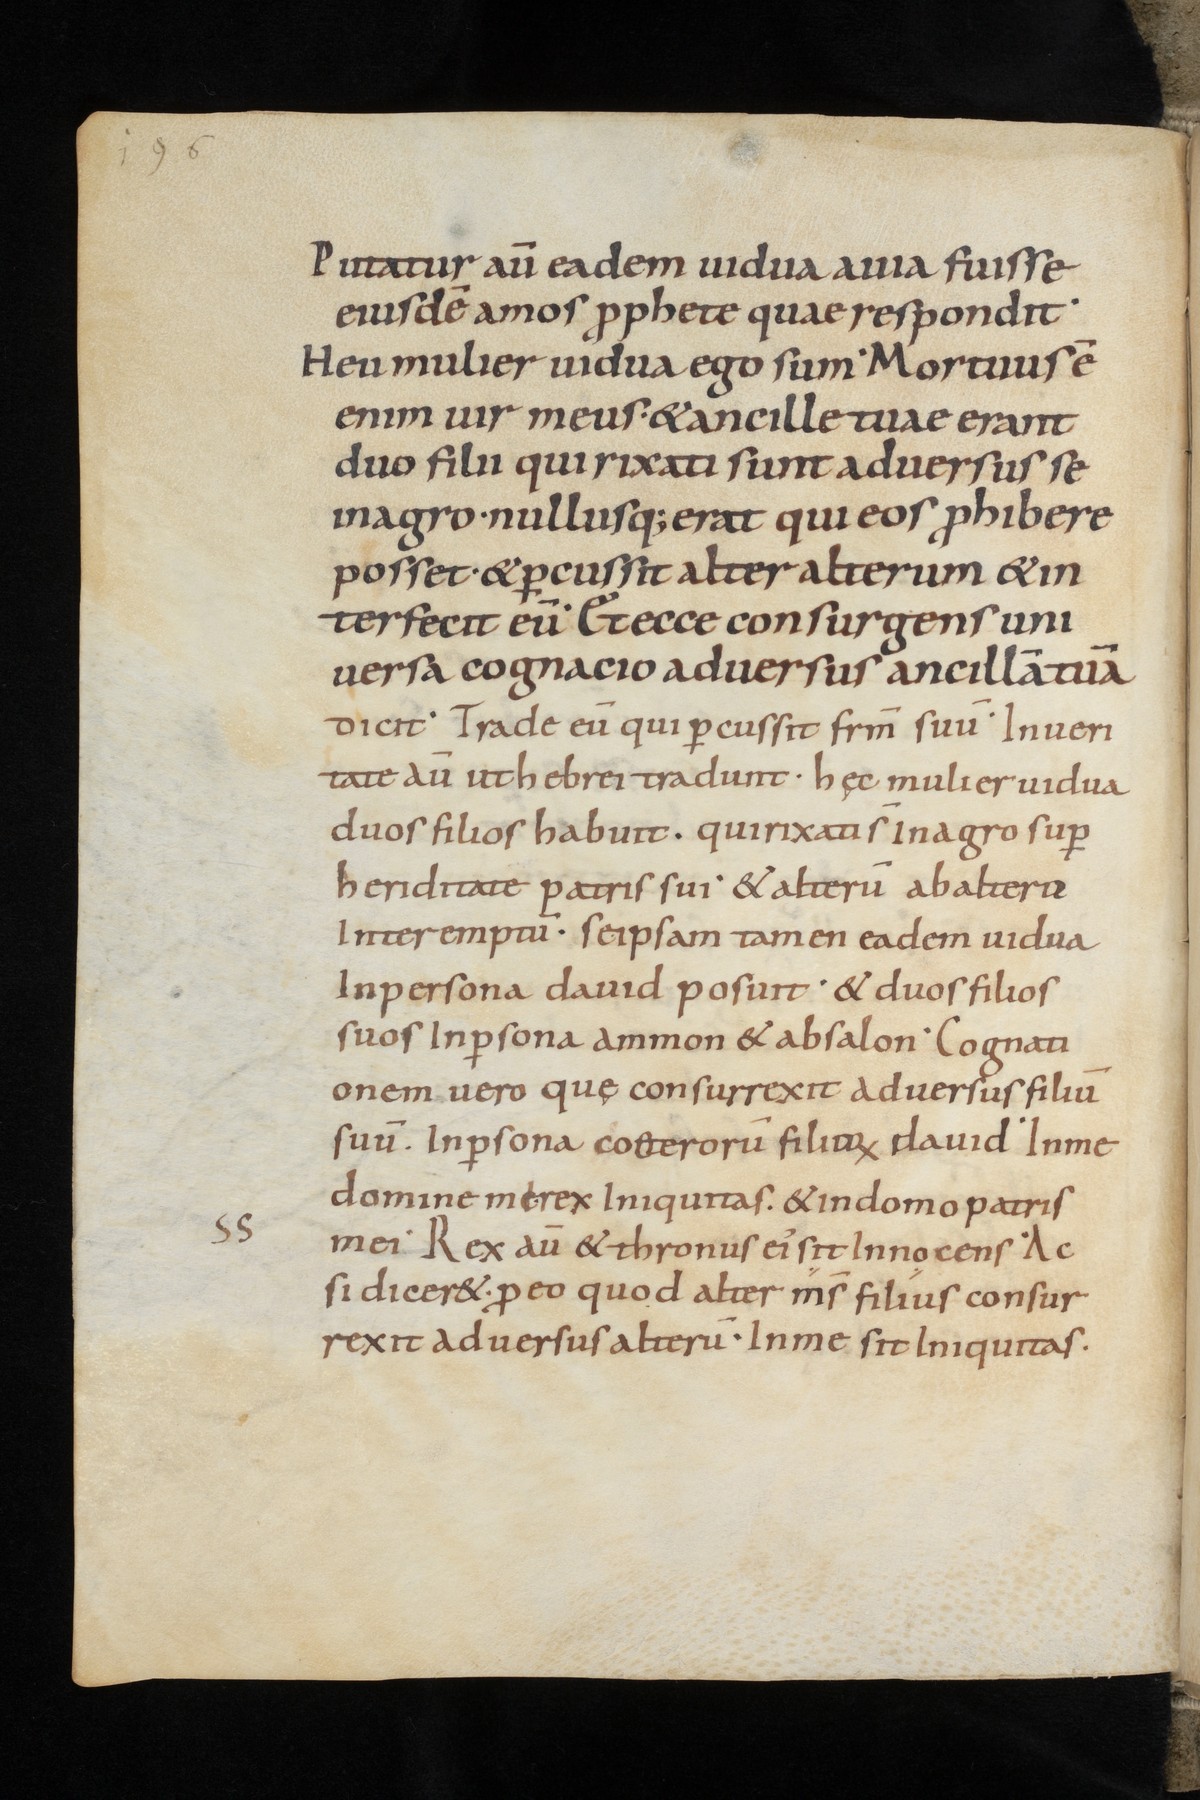 196
Putatur aū eadem uidua auia fuisse
eiusdē amos ꝓphete quae respondit·
Heu mulier uidua ego sum· Mortuus ē
enim uir meus· & ancille tuae erant
duo filii qui rixati sunt aduersus se
in agro· nullusq; erat qui eos ꝓhibere
posset· & ꝑcussit alter alterum & in
terfecit eū· Et ecce consurgens uni
uersa cognacio aduersus ancillā tuā
dicit· Trade eū qui ꝑcussit frm̄ suū· In ueri
tate aū ut hebrei tradunt· hęc mulier uidua
duos filios habuit. qui rixati s̄ in agro suꝑ
heriditate patris sui· & alterū ab altero
Interemptū· seipsam tamen eadem uidua
In persona dauid posuit· & duos filios
suos In ꝑsona ammon & absalon· Cognati
onem uero quę consurrexit aduersus filiū
suū. In ꝑsona ceterorū filioꝝ dauid· In me
domine mi rex Iniquitas. & in domo patris
SS
mei· Rex aū & thronus ei᾽ sit Innocens· Ac
si dicer&· ꝓ eo quod alter m̄s filius consur
rexit aduersus alterū· In me sit Iniquitas.